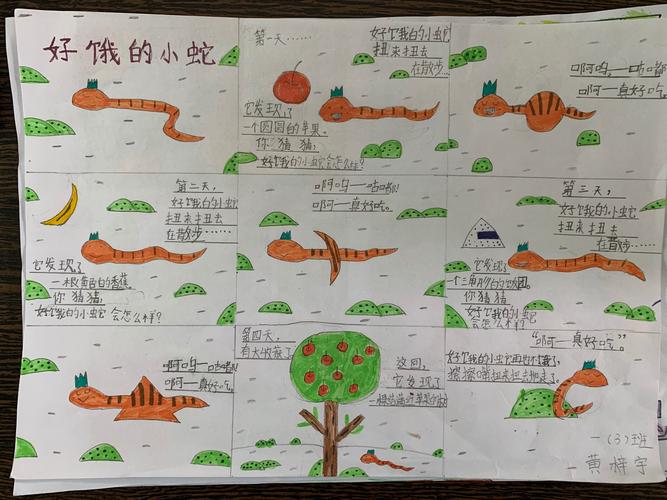 好饿的小蛇
第一天……
好饿的小蛇
扭来扭去
在散步…
它发现了
一个圆圆的苹果。
你猜猜，
好饿的小蛇会怎么样？
啊呜—咕嘟
啊—真好吃。
第二天，
好饿的小蛇
扭来扭去
在散步……
它发现了
一根黄色的香蕉。
你猜猜，
好饿的小蛇会怎么样？
啊呜—咕嘟！
啊—真好吃。
第三天，
好饿的小蛇
扭来扭去
在散步……
它发现了
一个三角形的饭团。
你猜猜，
好饿的小蛇
会怎么样？
啊呜—咕嘟！
啊—真好吃。
第四天，
有大收获了
这回，
它发现了
一棵结满
苹果的树
"啊—真好吃"。
好饿的小蛇再也不饿了，
扭来扭去
走了。
一（3）班
黄梓宇